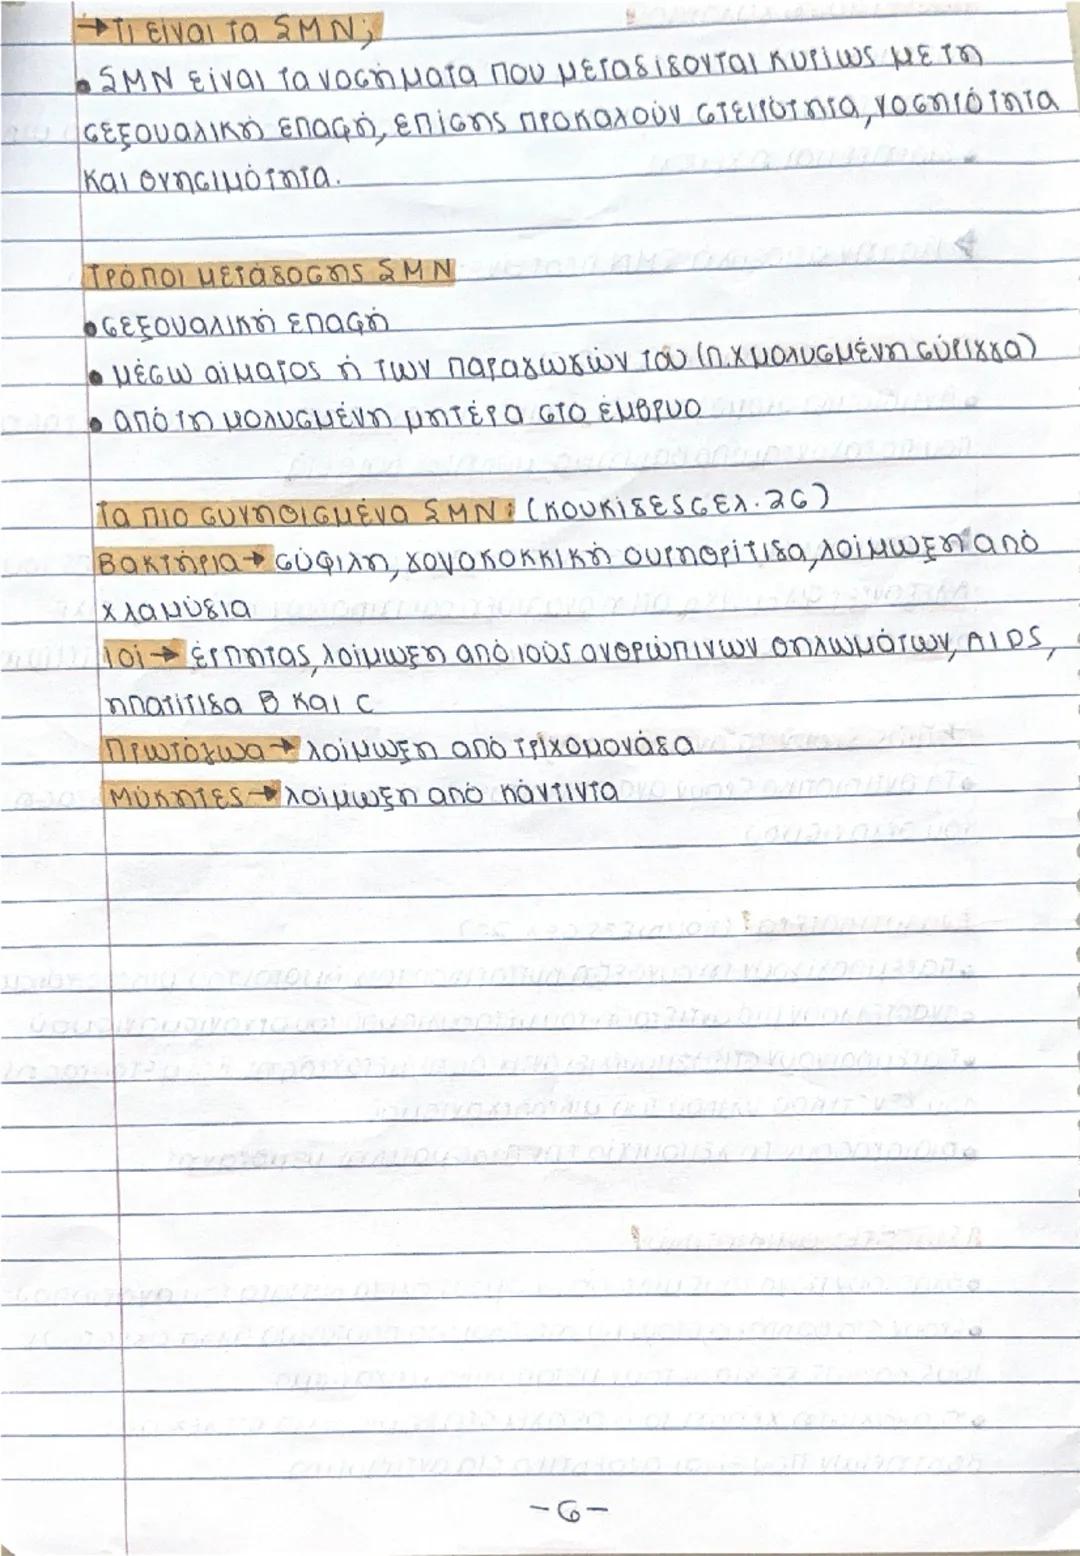 →Τι είναι τα ΣΜΝ;
• ΣΜΝ είναι τα νοσήματα που μεταδίδονται κυρίως με τη
σεξουαλική επαφή, επίσης προκαλούν στειρότητα, νοσηρότητα
και θνησιμότητα.
Τρόποι μετάδοσης ΣΜΝ
• σεξουαλική επαφή
• μέσω αίματος ή των παραγώγών του (π.χ μολυσμένη σύριγγα)
• από τη μολυσμένη μητέρα στο έμβρυο
Τα πιο συνηθισμένα ΣΜΝ: (κουκίδες σελ. 26)
Βακτήρια→ σύφιλη, γονοκοκκική ουρηθρίτιδα, λοίμωξη από
χλαμύδια
Ιοί → έρπητας, λοίμωξη από ιούς ανθρώπινων θηλωμάτων, AIDS,
ηπατίτιδα Β και C
Πρωτόζωα→ λοίμωξη από τριχομονάδα
Μύκητες→ λοίμωξη από κάντιντα
-6-